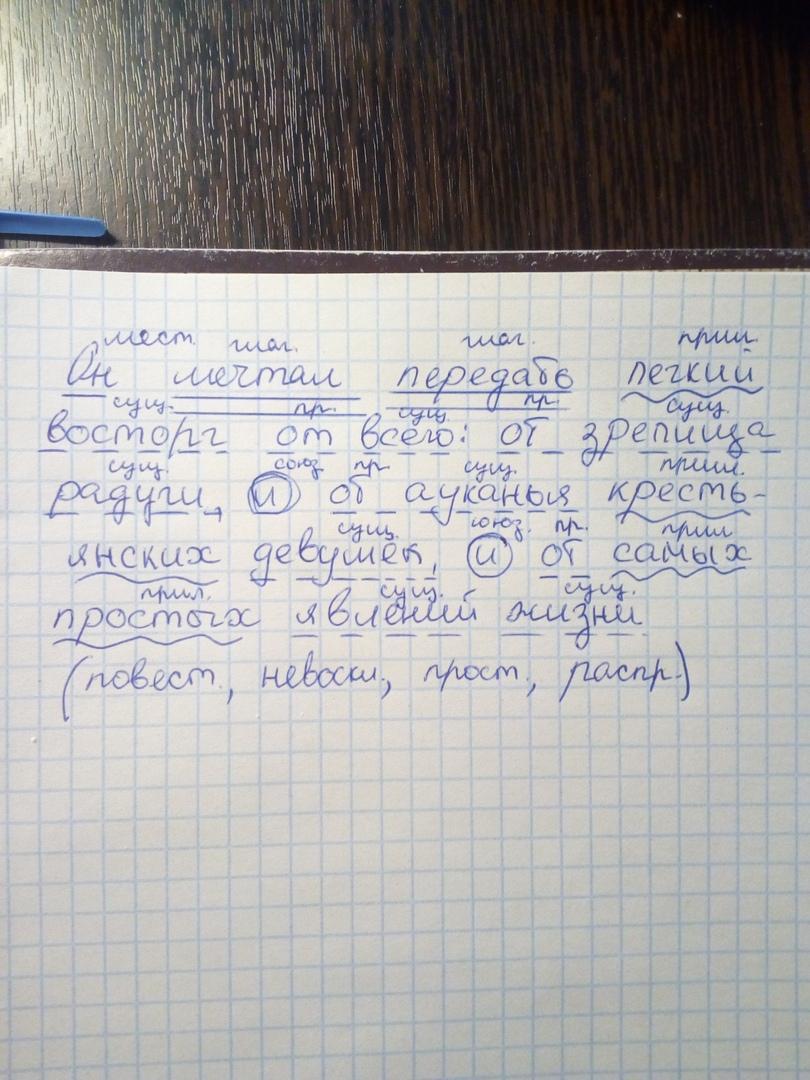 мест. глаг. глаг. прил.
Он мечтал передать легкий
сущ. пр. сущ. пр. сущ.
восторг от всего: от зрелища
сущ. союз пр. сущ. прил.
радуги, и от ауканья кресть-
сущ. союз. пр. прил
янских девушек, и от самых
прил. сущ. сущ.
простых явлений жизни
(повест., невоскл., прост., распр.)